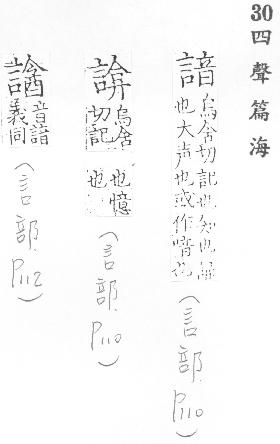 30四聲篇海
諳 烏含切記也知也
也大声也或作喑
(言部.P110)
烏含切記也憶也
(言部.P110)
音諳義同
(言部.P112)